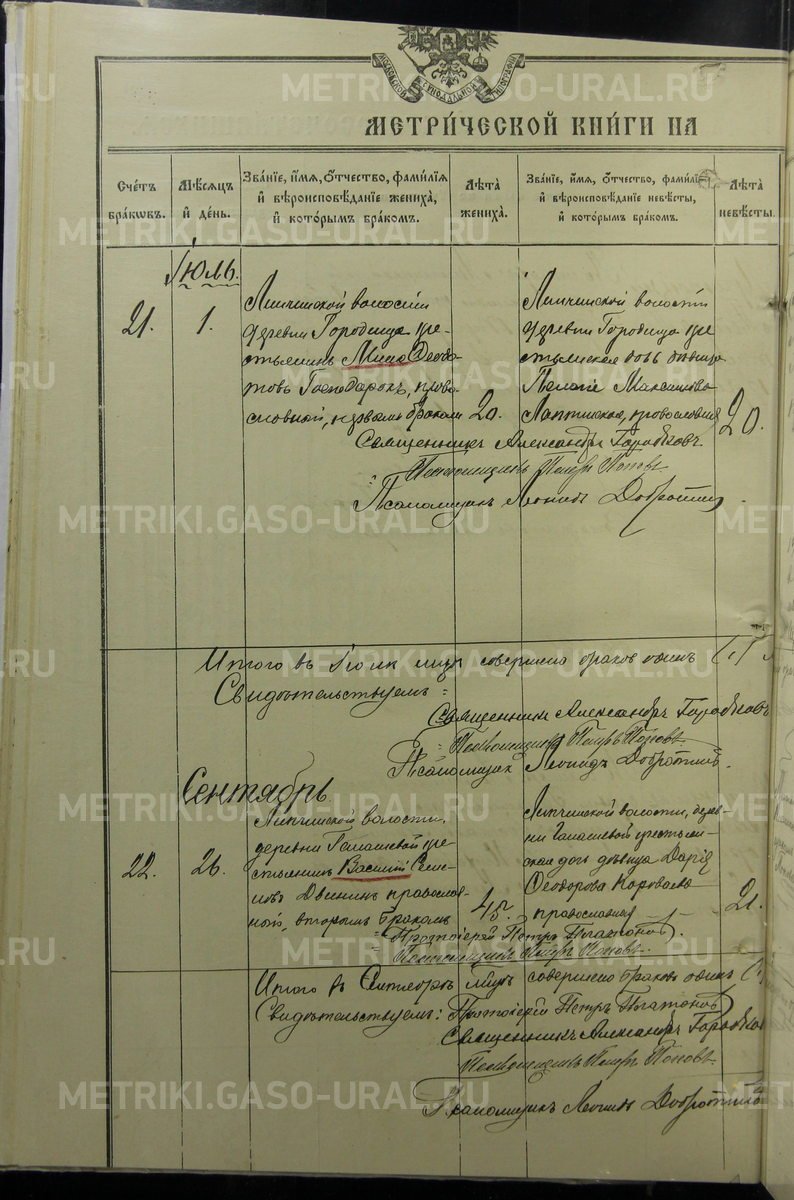 МОСКОВСКОЙ СѴНОДАЛЬНОЙ ТИПОГРАФІИ
МЕТРИ́ЧЕСКОЙ КНИ́ГИ НА
Сче́тъ бра́ковъ.
Мѣ́сяцъ и҆ де́нь.
Зва́нїе, и҆́мя, ѻ҆́тчество, фами́лїя
и҆ вѣроисповѣ́данїе жениха̀,
и҆ кото́рымъ бра́комъ.
Лѣ́та жениха̀.
Зва́нїе, и҆́мя, ѻ҆́тчество, фами́лїя
и҆ вѣроисповѣ́данїе невѣ́сты,
и҆ кото́рымъ бра́комъ.
Лѣ́та невѣ́сты.
Іюль.
21.
1.
Липчинской волости
деревни Городища кре-
стьянинъ
Господарокъ, право-
славный, первымъ бракомъ
20.
Липчинской волости
деревни Городища кре
стьянская дочь девица
Пелагія Максимова
православная
20.
Священникъ Александръ
Петръ Поповъ
Псаломщикъ Леонидъ
Итого въ Іюлѣ мцѣ совершено браковъ одинъ (1)
Свидѣтельствуемъ:
Священникъ Александръ
Петръ Поповъ
Псаломщикъ Леонидъ
Сентябрь
22.
26.
Липчинской волости,
деревни Галашевой кре
стьянинъ Василій Семе-
новъ Двининъ православ-
ный, вторымъ бракомъ
45.
Липчинской волости, дерев-
ни Галашевой крестьян-
ская дочь дѣвица Дарія
Ѳеодорова
православная
21.
Протоіерей Петръ
Петръ Поповъ.
Итого въ Сентябрѣ мцѣ совершено браковъ одинъ (1)
Свидѣтельствуемъ: Протоіерей Петръ
Священникъ Александръ
Петръ Поповъ
Псаломщикъ Леонидъ
METRIKI.GASO-URAL.RU